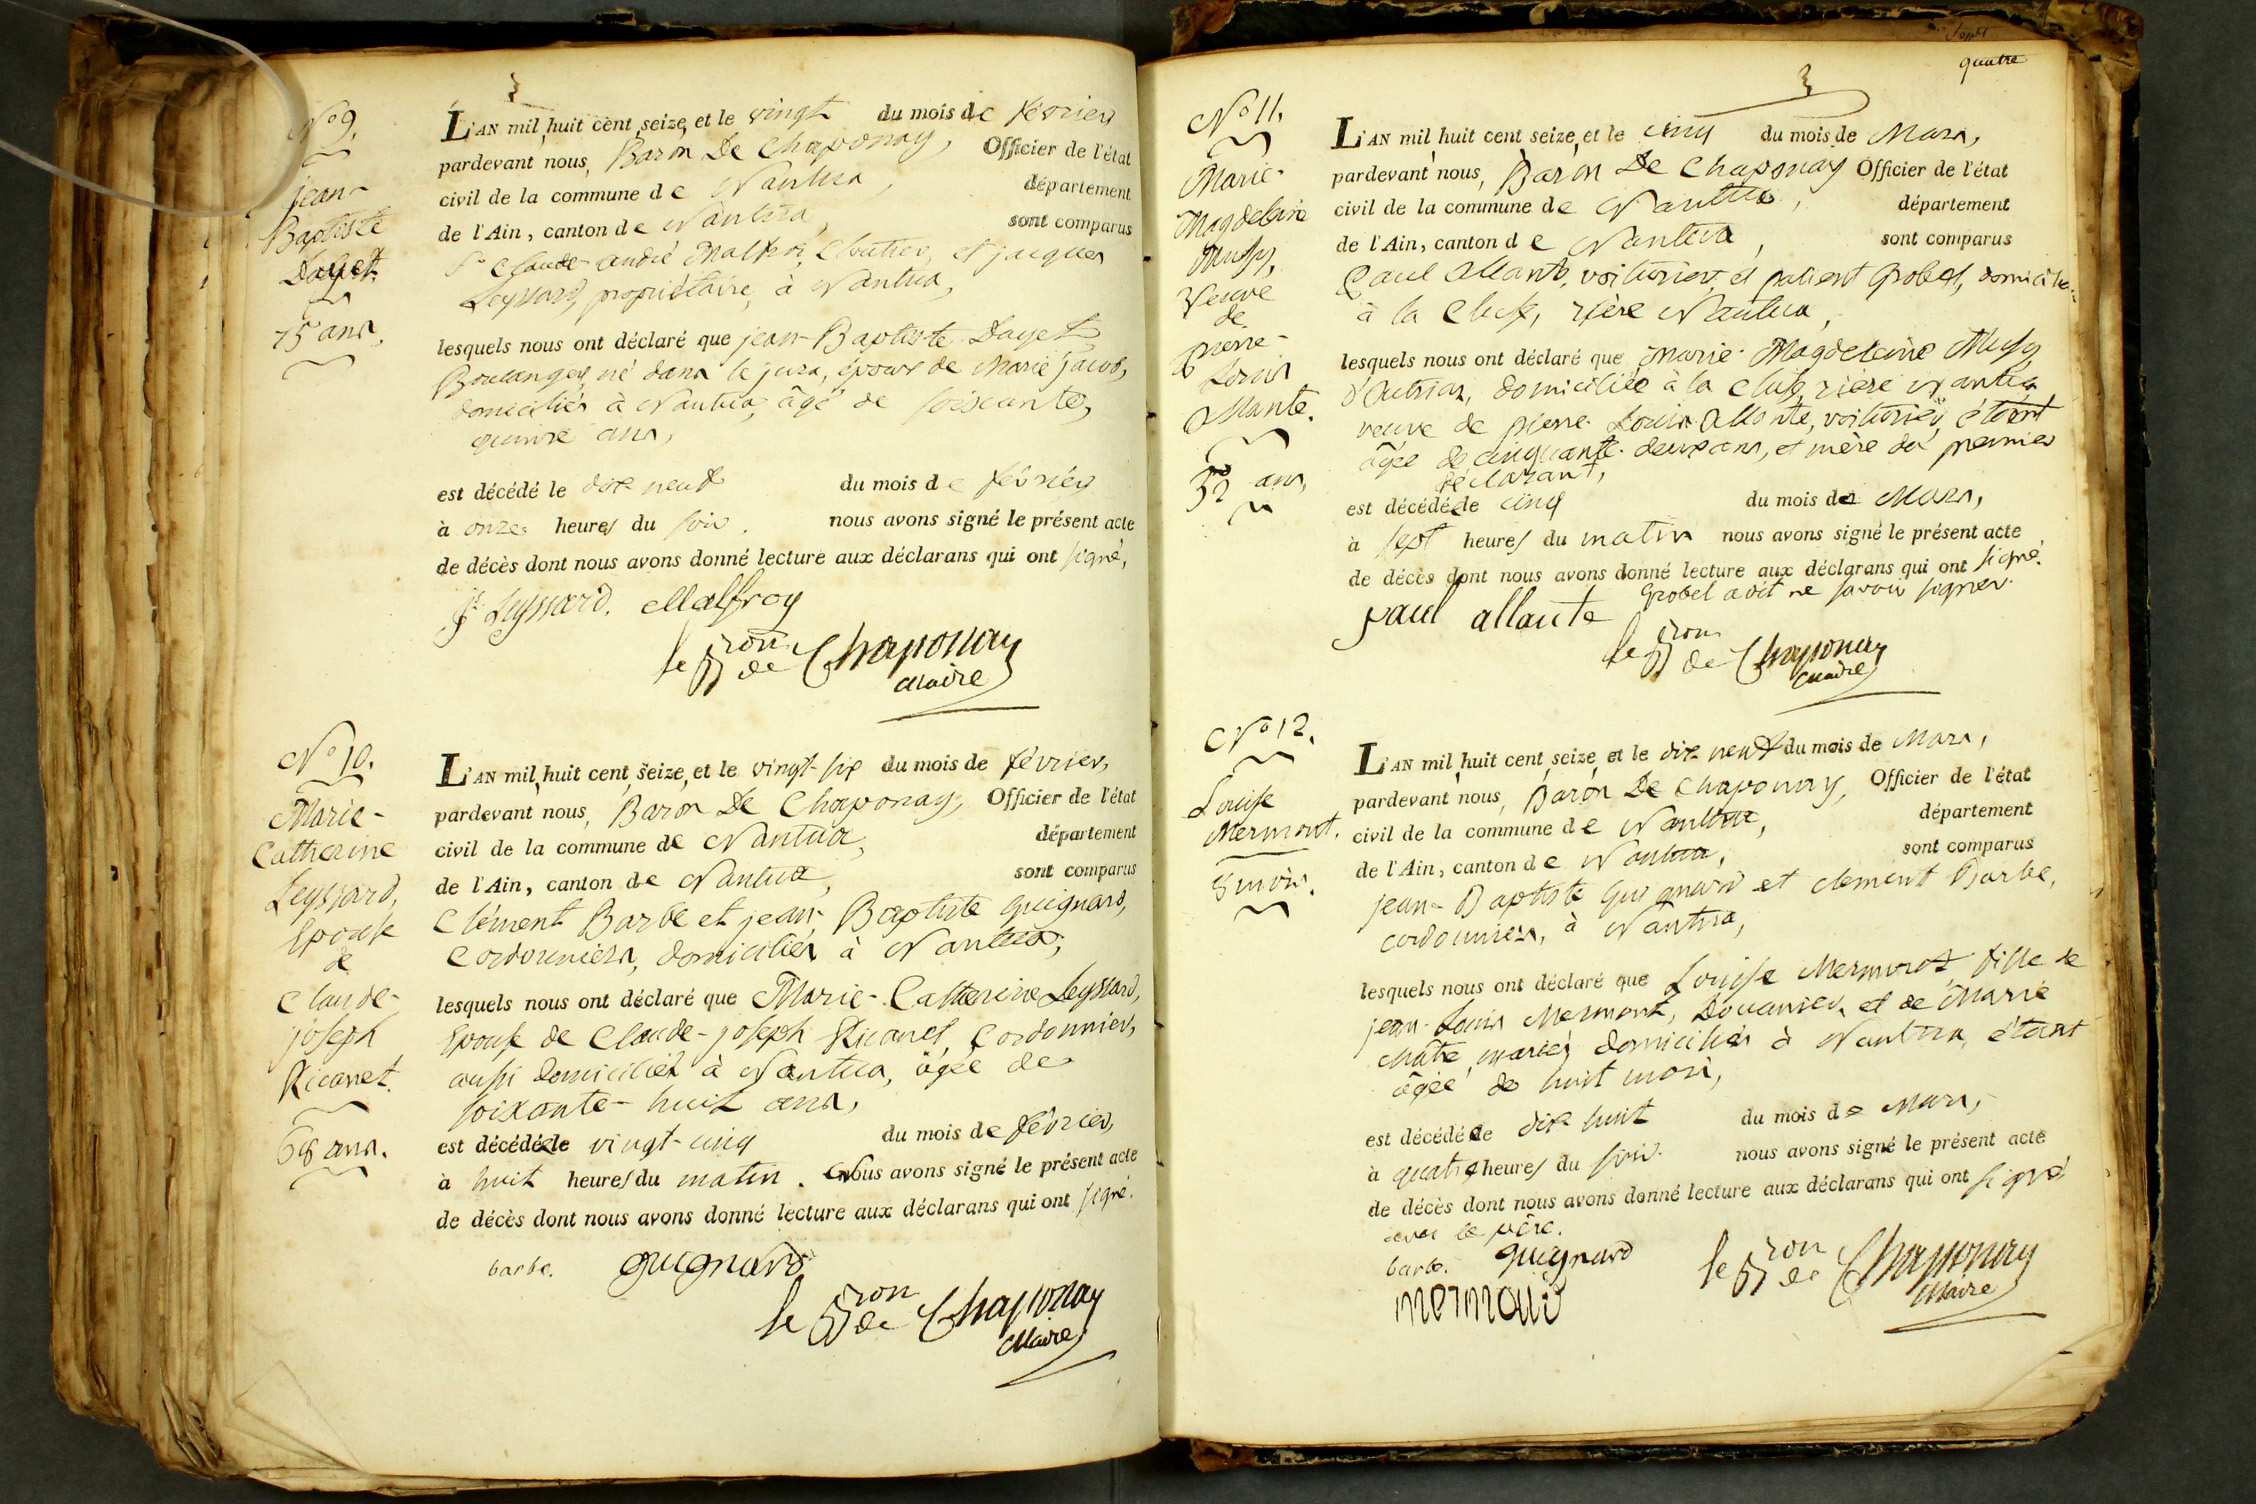 N° 9.
jean-
Baptiste
Dayet.
75 ans.
L'AN mil huit cent seize, et le vingt du mois de février
pardevant nous, Baron De Chaponay, Officier de l'état
civil de la commune de Nantua, département
de l'Ain, canton de Nantua, sont comparus
Sr Claude-andré Malfroi, et jacques
Leyssard, propriétaire, à Nantua,
lesquels nous ont déclaré que jean-Baptiste Dayet
Boulanger, né dans le jura, époux de Marie jacob,
domiciliés à Nantua, âgé de soissante,
quinze ans,
est décédé le dix neuf du mois de février
à onze heures du soir. nous avons signé le présent acte
de décès dont nous avons donné lecture aux déclarans qui ont signé,
Leyssard. Malfroy
le Bron de Chaponay
Maire
N° 10.
Marie-
Catherine
Leyssard,
Epouse
de
Claude-
joseph
Ricanet.
68 ans.
L'AN mil huit cent seize, et le vingt-six du mois de février,
pardevant nous, Baron De Chaponay, Officier de l'état
civil de la commune de Nantua, département
de l'Ain, canton de Nantua, sont comparus
Clément Barbe et jean-Baptiste guignard,
Cordonniers, domiciliés à Nantua,
lesquels nous ont déclaré que Marie-Catherine Leyssard,
Epouse de Claude-joseph Ricanet, Cordonnier,
aussi domiciliés à Nantua, âgée de
soixante-huit ans,
est décédée le vingt-cinq du mois de février,
à huit heures du matin. Nous avons signé le présent acte
de décès dont nous avons donné lecture aux déclarans qui ont signé.
barbe. guignard
le Bron de Chaponay
Maire
quatre
N° 11.
Marie-
Magdeleine
Mussy,
Veuve
de
pierre-
Louis
Allante.
52 ans,
L'AN mil huit cent seize, et le cinq du mois de Mars,
pardevant nous, Baron De Chaponay Officier de l'état
civil de la commune de Nantua, département
de l'Ain, canton de Nantua, sont comparus
Paul Allante, voiturier, et patient Grobel,
à la Cluse, rière Nantua,
lesquels nous ont déclaré que Marie-Magdeleine Mussy
domiciliée à la Cluse, rière Nantua
veuve de pierre-Louis Allante, voiturier, étant
âgée de cinquante-deux ans, et mère du premier
déclarant,
est décédée le cinq du mois de Mars,
à sept heures du matin nous avons signé le présent acte
de décès dont nous avons donné lecture aux déclarans qui ont signé.
Grobel a dit ne savoir signer.
paul allante
le Bron de Chaponay
Maire
N° 12.
Louise
Mermont.
8 mois.
L'AN mil huit cent seize, et le dix neuf du mois de Mars,
pardevant nous, Baron De Chaponay, Officier de l'état
civil de la commune de Nantua, département
de l'Ain, canton de Nantua, sont comparus
jean-Baptiste Guignard et clement Barbe,
cordonniers, à Nantua,
lesquels nous ont déclaré que Louise Mermont, fille de
jean-Louis Mermont, Douanier, et de Marie
mariés, domiciliés à Nantua, étant
âgée de huit mois,
est décédée le dix huit du mois de Mars,
à quatre heures du soir. nous avons signé le présent acte
de décès dont nous avons donné lecture aux déclarans qui ont signé
avec le père.
barbe. guignard
le Bron de Chaponay
Maire